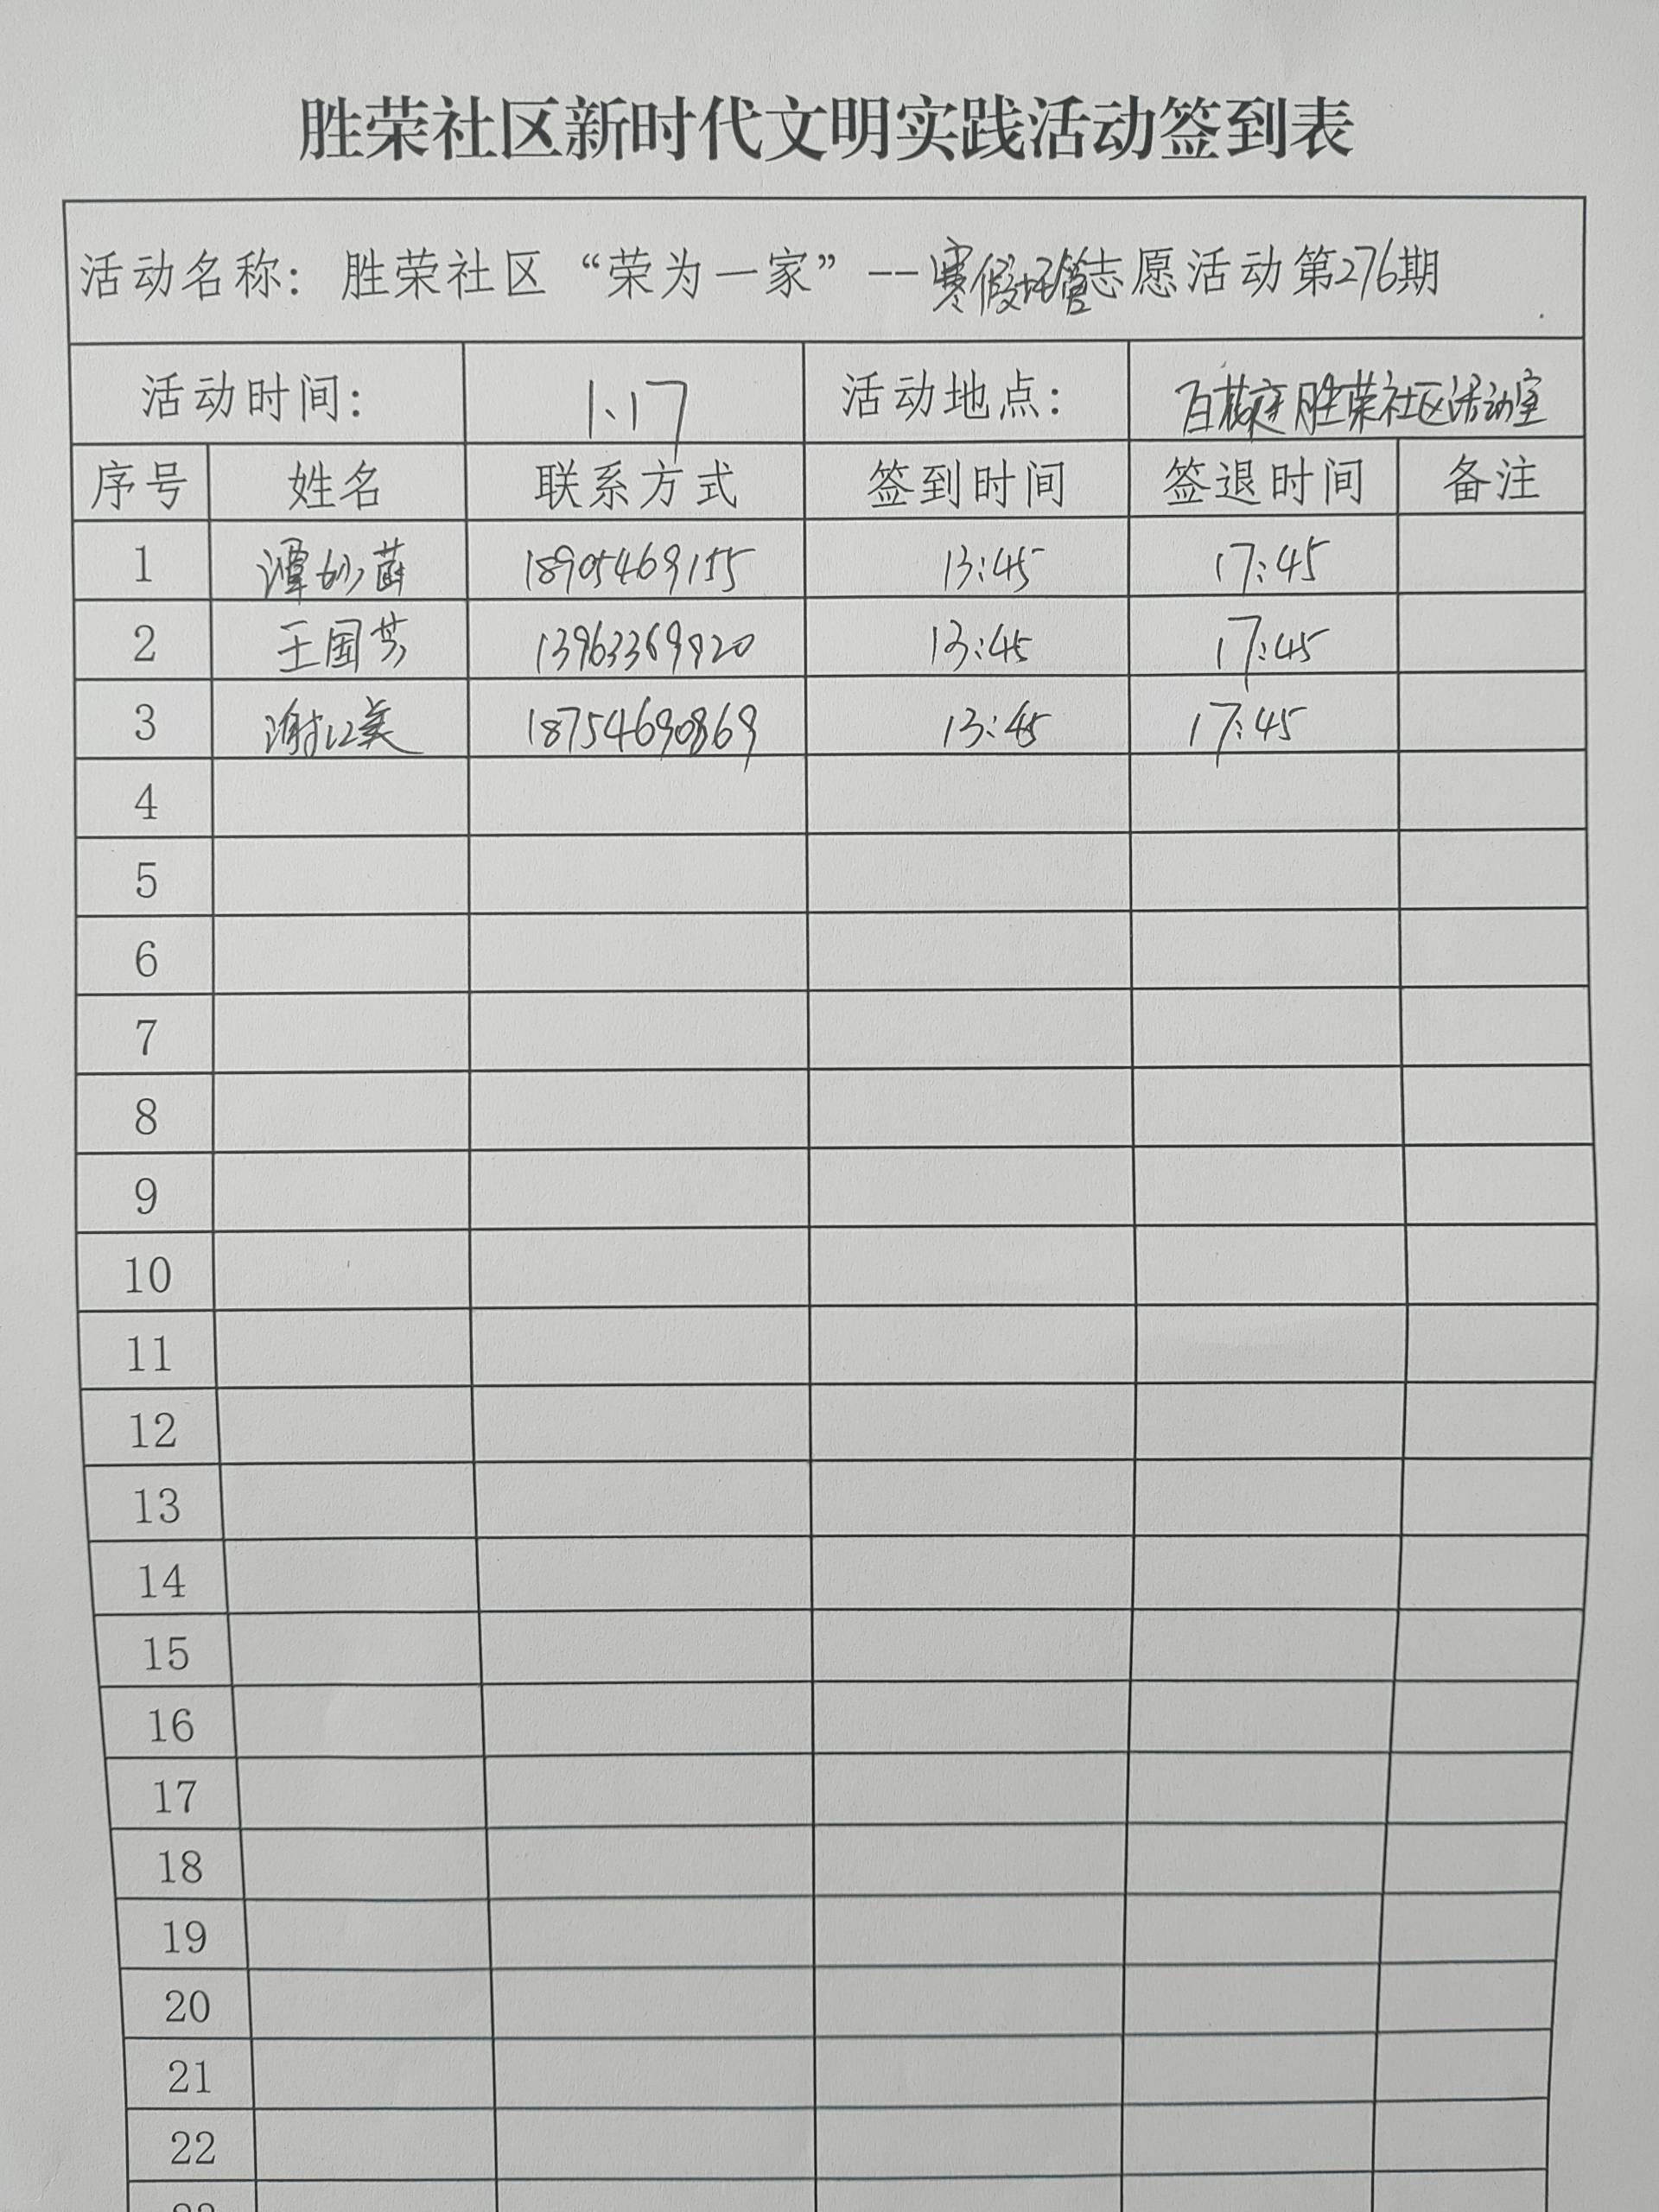 胜荣社区新时代文明实践活动签到表
活动名称：胜荣社区“荣为一家”--寒假托管志愿活动第276期
活动时间： 1、17 活动地点： 百花庭胜荣社区活动室
序号 姓名 联系方式 签到时间 签退时间 备注
1 谭妙 18905469155 13:45 17:45
2 王国芳 13963369920 13:45 17:45
3 谢江美 18754690869 13:45 17:45
4
5
6
7
8
9
10
11
12
13
14
15
16
17
18
19
20
21
22